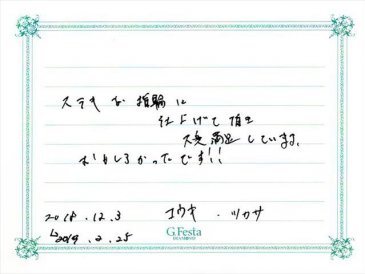 ステキな指輪に
仕上げて頂き
大変満足しています。
おもしろかったです!!
2018.12.3 コウキ . ツカサ
2019.2.25
G.Festa
DIAMOND